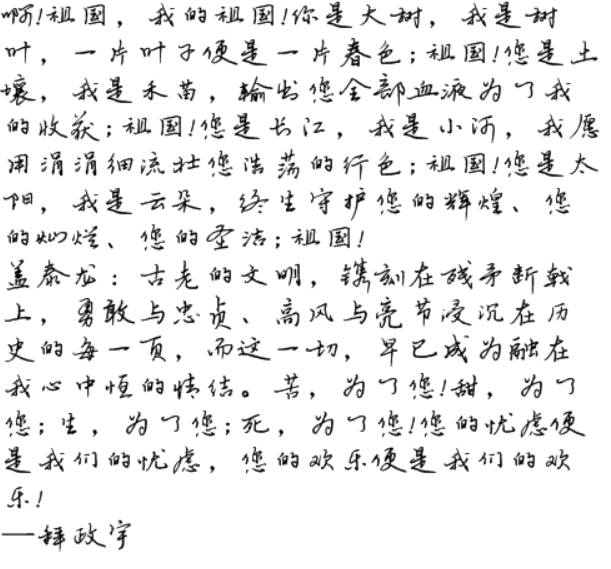 啊!祖国，我的祖国!你是大树，我是树
叶，一片叶子便是一片春色;祖国!您是土
壤，我是禾苗，输出您全部血液为了我
的收获;祖国!您是长江，我是小河，我愿
用涓涓细流壮您浩荡的行色;祖国!您是太
阳，我是云朵，终生守护您的辉煌、您
的灿烂、您的圣洁;祖国!
盖泰龙：古老的文明，镌刻在残矛断戟
上，勇敢与忠贞、高风与亮节浸沉在历
史的每一页，而这一切，早已成为融在
我心中恒的情结。苦，为了您!甜，为了
您;生，为了您;死，为了您!您的忧虑便
是我们的忧虑，您的欢乐便是我们的欢
乐!
——释政宇